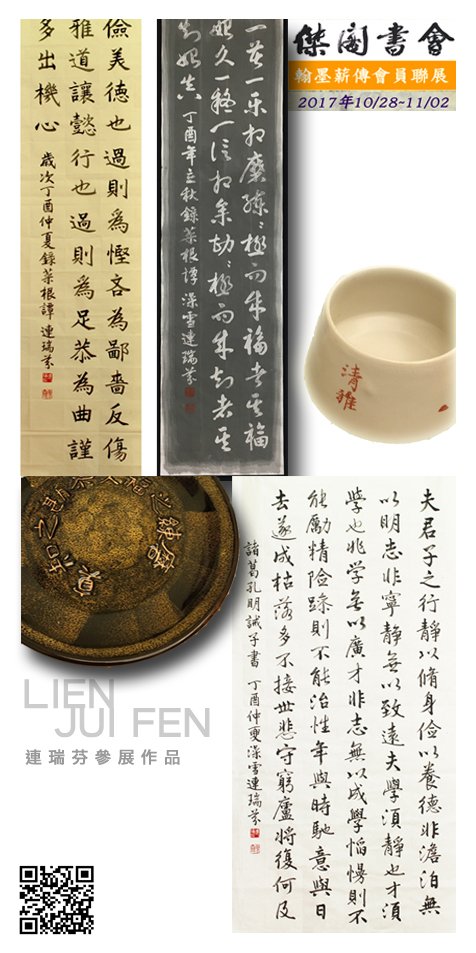 傑閣書會
翰墨薪傳會員聯展
2017年10/28~11/02
儉美德也過則爲慳吝為鄙嗇反傷
雅道讓懿行也過則爲足恭為曲謹
多出機心
歲次丁酉仲夏錄菜根譚 連瑞芬
一苦一乐相磨練〻極而成福者其福
始久一疑一信相參勘〻極而成知者其
知始真
丁酉年立秋錄菜根譚 澡雪連瑞芬
清雅
夫君子之行靜以脩身儉以養德非澹泊無
以明志非寧靜無以致遠夫學須靜也才須
學也非学無以廣才非志無以成學慆慢則不
能勵精險躁則不能治性年與時馳意與日
去遂成枯落多不接世悲守窮廬將復何及
諸葛孔明誡子書 丁酉仲夏澡雪連瑞芬
LIEN
JUI FEN
連瑞芬參展作品